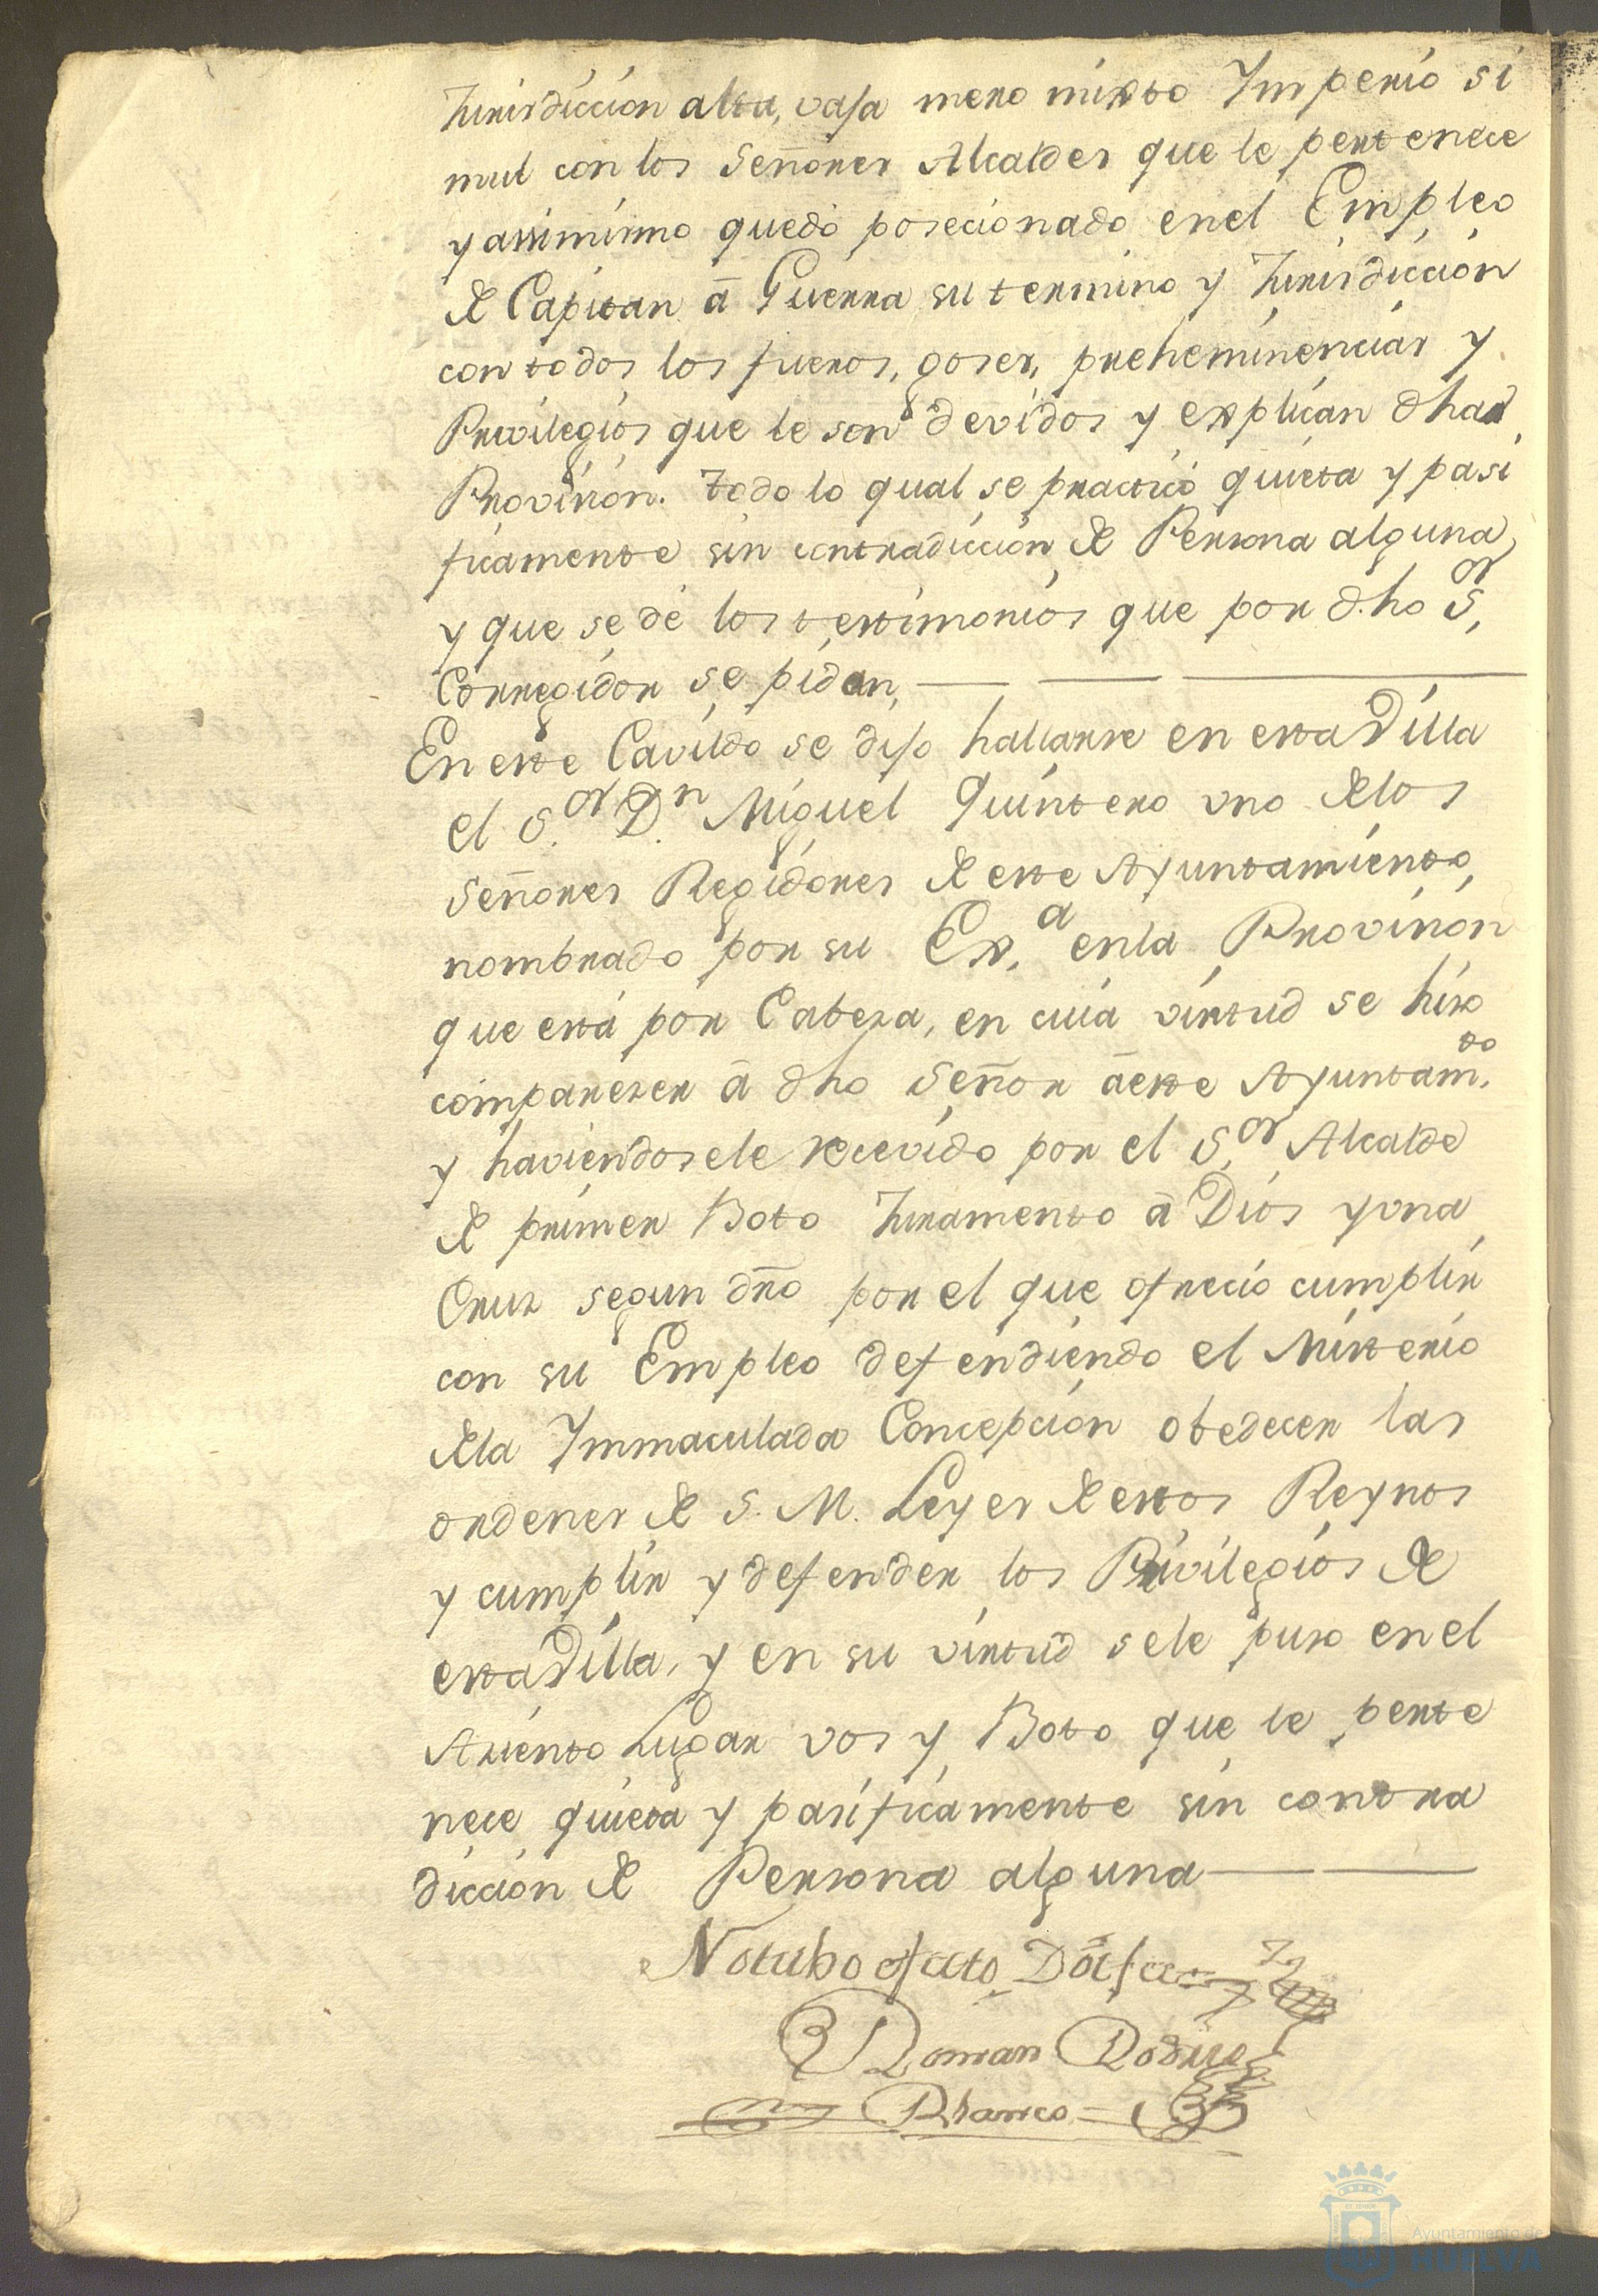 Jurisdiccion alta, vaja mero mixto Imperio si
mul con los Señores Alcaldes que le pertenece
y assimismo quedó posecionado en el Empleo
de Capitan á Guerra su termino y Jurisdiccion
con todos los fueros, goses, preheminencias y
Privilegios que le son devidos y explican dha
Provision. todo lo qual se practicó quieta y pasi
ficamente sin contradiccion de Persona alguna,
y que se dé los testimonios que por d.ho S.or
Corregidor se pidan,
En este Cavildo se dijo hallarse en esta Villa
el S.or D.n Miguel Quintero vno delos
Señores Regidores de este Ayuntamiento,
nombrado por su Ex.a enla Provision
que está por Cabeza, en cuia virtud se hiso
comparezer á dho Señor á este Ayuntam.to
y haviendosele recevido por el S.or Alcalde
de primer Boto Juramento á Dios y vna
Cruz segun dro por el que ofrecio cumplir
con su Empleo defendiendo el Misterio
dela Immaculada Concepcion obedecer las
ordenes de S. M. Leyes de estos Reynos
y cumplir y defender los Privilegios de
esta Villa, y en su virtud sele puso en el
Asiento Lugar vos y Boto que le perte
nece quieta y pasificamente sin contra
diccion de Persona alguna
Notubo efecto Doi fee
Roman Rodrig.z
Blanco
Ayuntamiento de
HUELVA